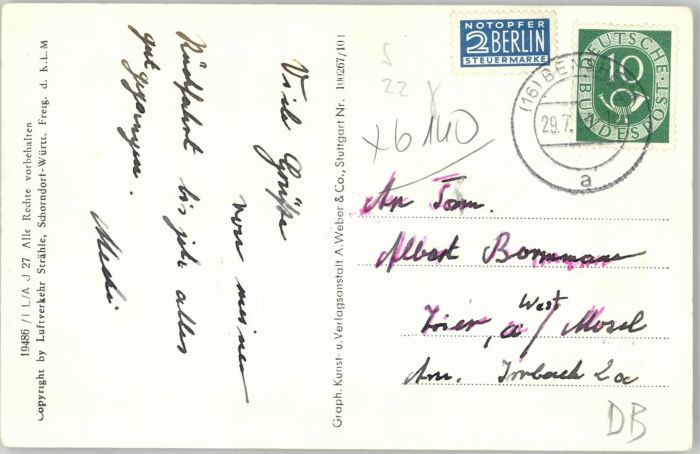 19486/1 L/A J 27 Alle Rechte vorbehalten
Copyright by Luftverkehr Strähle, Schorndorf-Württ. Freig. d. K.L.M
Viele Grüße
von meiner
Rückfahrt bis jetzt alles
gut gegangen.
Graph. Kunst- u. Verlagsanstalt A. Weber & Co., Stuttgart Nr. 100267/101
NOTOPFER
2 BERLIN
STEUERMARKE
DEUTSCHE
10
BUNDESPOST
(16) BEN
29.7.
a
22
x6140
An Fam.
Albert Bornmann
Trier, a/ West Mosel
Am. Irrbach 2a
DB